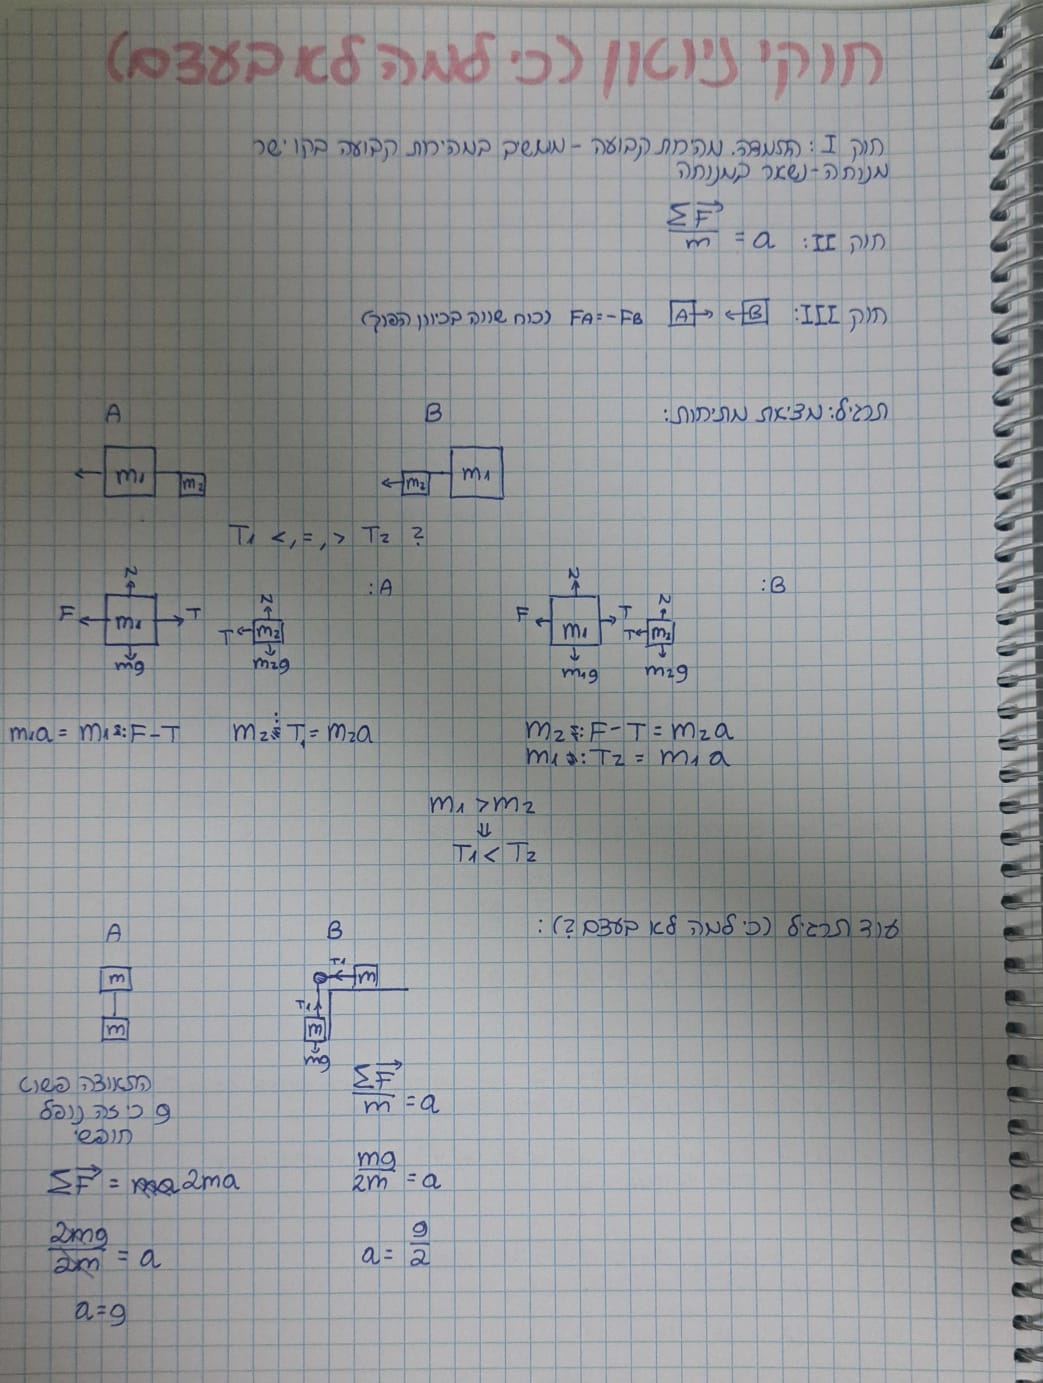 חוקי ניוטון (כי למה לא בעצם)
חוק I: התמדה. מהירות קבועה - ממשיך במהירות קבועה בקו ישר
מנוחה - נשאר במנוחה
חוק II: ΣF/m = a
חוק III: A B FA=-FB (כוח שווה בכיוון הפוך)
תרגיל: מציאת מתיחות:
A B
m1 m2 m2 m1
T1 <,=,> T2 ?
A: B:
N F m1 T mg
N T m2 m2g
N F m1 T m1g
N T m2 m2g
m1a = m1: F-T
m2: T1 = m2a
m2: F-T = m2a
m1: T2 = m1a
m1 > m2
⇓
T1 < T2
עוד תרגיל (כי למה לא בעצם?):
A B
m m
T1 m T1 m mg
התאוצה פשוט
g כי זה נופל
חופשי
ΣF = 2ma
2mg/2m = a
a=g
ΣF/m = a
mg/2m = a
a = g/2